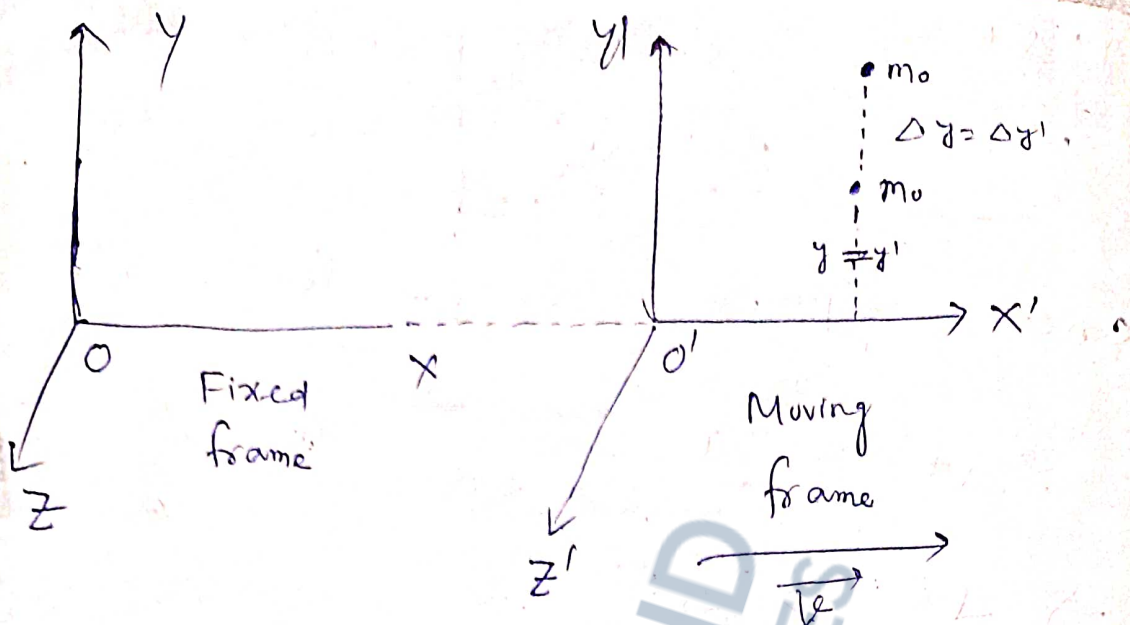 Y
y'
m₀
Δy = Δy'.
m₀
y = y'
X'
O
X
O'
Fixed
frame
Moving
frame
Z
Z'
v